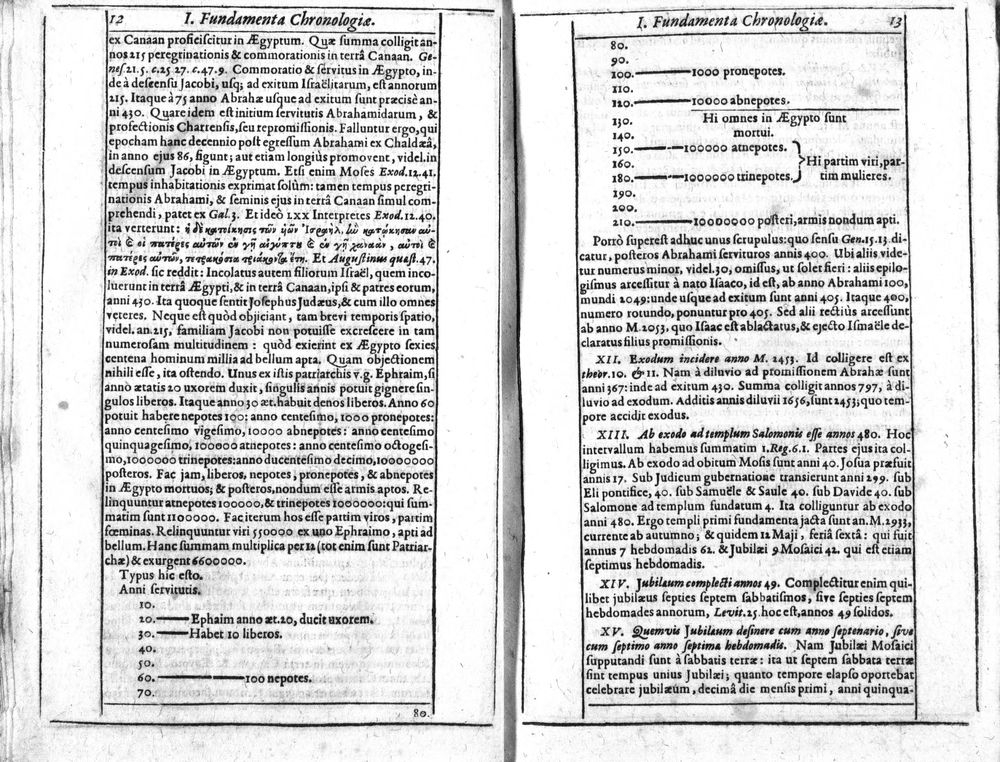 12 I. Fundamenta Chronologiæ.
ex Canaan proficiscitur in Ægyptum. Quæ summa colligit an-
nos 215 peregrinationis & commorationis in terrâ Canaan. Ge-
nes. 21. 5. c. 25 27. c. 47. 9. Commoratio & servitus in Ægypto, in-
de à descensu Jacobi, usq; ad exitum Israëlitarum, est annorum
215. Itaque à 75 anno Abrahæ usque ad exitum sunt præcisè an-
ni 430. Quare idem est initium servitutis Abrahamidarum, &
profectionis Charrensis, seu repromissionis. Falluntur ergo, qui
epocham hanc decennio post egressum Abrahami ex Chaldæâ,
in anno ejus 86, figunt; aut etiam longiùs promovent, videl. in
descensum Jacobi in Ægyptum. Etsi enim Moses Exod. 12. 41.
tempus inhabitationis exprimat solùm: tamen tempus peregri-
nationis Abrahami, & seminis ejus in terrâ Canaan simul com-
prehendi, patet ex Gal. 3. Et ideò LXX Interpretes Exod. 12. 40.
ita verterunt: ἡ δὲ κατοίκησις τῶν ἡῶν Ἰσραὴλ, ἣν κατῴκησαν αὐ-
τοὶ ϗ οἱ πατέρες αὐτῶν ἐν γῇ αἰγύπτῳ ϗ ἐν γῇ χαναὰν, αὐτοὶ ϗ
πατέρες αὐτῶν, τετρακόσια τριάκοντα ἔτη. Et Augustinus quæst. 47.
in Exod. sic reddit: Incolatus autem filiorum Israël, quem inco-
luerunt in terrâ Ægypti, & in terrâ Canaan, ipsi & patres eorum,
anni 430. Ita quoque sentit Josephus Judæus, & cum illo omnes
veteres. Neque est quòd objiciant, tam brevi temporis spatio,
videl. an. 215, familiam Jacobi non potuisse excrescere in tam
numerosam multitudinem: quòd exierint ex Ægypto sexies
centena hominum millia ad bellum apta. Quam objectionem
nihili esse, ita ostendo. Unus ex istis patriarchis v.g. Ephraim, si
anno ætatis 20 uxorem duxit, singulis annis potuit gignere sin-
gulos liberos. Itaque anno 30 æt. habuit denos liberos. Anno 60
potuit habere nepotes 100: anno centesimo, 1000 pronepotes:
anno centesimo vigesimo, 10000 abnepotes: anno centesimo
quinquagesimo, 100000 atnepotes: anno centesimo octogesi-
mo, 1000000 trinepotes: anno ducentesimo decimo, 10000000
posteros. Fac jam, liberos, nepotes, pronepotes, & abnepotes
in Ægypto mortuos; & posteros, nondum esse armis aptos. Re-
linquuntur atnepotes 100000, & trinepotes 1000000: qui sum-
matim sunt 1100000. Fac iterum hos esse partim viros, partim
fœminas. Relinquuntur viri 550000 ex uno Ephraimo, apti ad
bellum. Hanc summam multiplica per 12 (tot enim sunt Patriar-
chæ) & exurgent 6600000.
Typus hic esto.
Anni servitutis.
10.
20. Ephaim anno æt. 20, ducit uxorem.
30. Habet 10 liberos.
40.
50.
60. 100 nepotes.
70.
80.
I. Fundamenta Chronologiæ. 13
80.
90.
100. 1000 pronepotes.
110.
120. 10000 abnepotes.
130. Hi omnes in Ægypto sunt
140. mortui.
150. 100000 atnepotes.
160. Hi partim viri, par-
180. 1000000 trinepotes. tim mulieres.
190.
200.
210. 10000000 posteri, armis nondum apti.
Porrò superest adhuc unus scrupulus: quo sensu Gen. 15. 13. di-
catur, posteros Abrahami servituros annis 400. Ubi aliis vide-
tur numerus minor, videl. 30, omissus, ut solet fieri: aliis epilo-
gismus arcessitur à nato Isaaco, id est, ab anno Abrahami 100,
mundi 2049: unde usque ad exitum sunt anni 405. Itaque 400,
numero rotundo, ponuntur pro 405. Sed alii rectiùs arcessunt
ab anno M. 2053, quo Isaac est ablactatus, & ejecto Ismaële de-
claratus filius promissionis.
XII. Exodum incidere anno M. 2453. Id colligere est ex
theor. 10. & 11. Nam à diluvio ad promissionem Abrahæ sunt
anni 367: inde ad exitum 430. Summa colligit annos 797, à di-
luvio ad exodum. Additis annis diluvii 1656, sunt 2453; quo tem-
pore accidit exodus.
XIII. Ab exodo ad templum Salomonis esse annos 480. Hoc
intervallum habemus summatim 1. Reg. 6. 1. Partes ejus ita col-
ligimus. Ab exodo ad obitum Mosis sunt anni 40. Josua præfuit
annis 17. Sub Judicum gubernatione transierunt anni 299. sub
Eli pontifice, 40. sub Samuële & Saule 40. sub Davide 40. sub
Salomone ad templum fundatum 4. Ita colliguntur ab exodo
anni 480. Ergo templi primi fundamenta jacta sunt an. M. 2933,
currente ab autumno; & quidem 12 Maji, feriâ sextâ: qui fuit
annus 7 hebdomadis 62. & Jubilæi 9 Mosaici 42. qui est etiam
septimus hebdomadis.
XIV. Jubilæum complecti annos 49. Complectitur enim qui-
libet jubilæus septies septem sabbatismos, sive septies septem
hebdomades annorum, Levit. 25. hoc est, annos 49 solidos.
XV. Quemvis Jubilæum desinere cum anno septenario, sive
cum septimo anno septimæ hebdomadis. Nam Jubilæi Mosaici
supputandi sunt à sabbatis terræ: ita ut septem sabbata terræ
sint tempus unius Jubilæi; quanto tempore elapso oportebat
celebrare jubilæum, decimâ die mensis primi, anni quinqua-